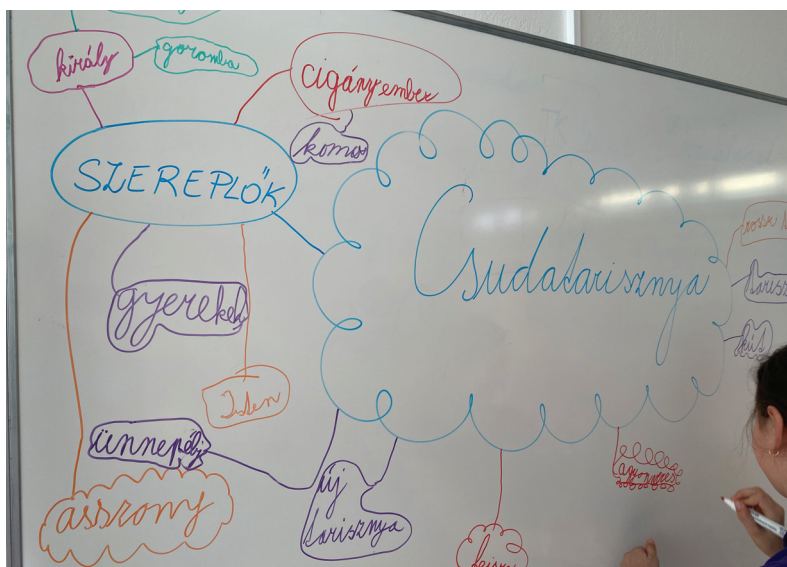 király
goromba
cigányember
komos
SZEREPLŐK
Csudatarisznya
gyerekek
kút
Isten
ünnepély
asszony
új
tarisznya